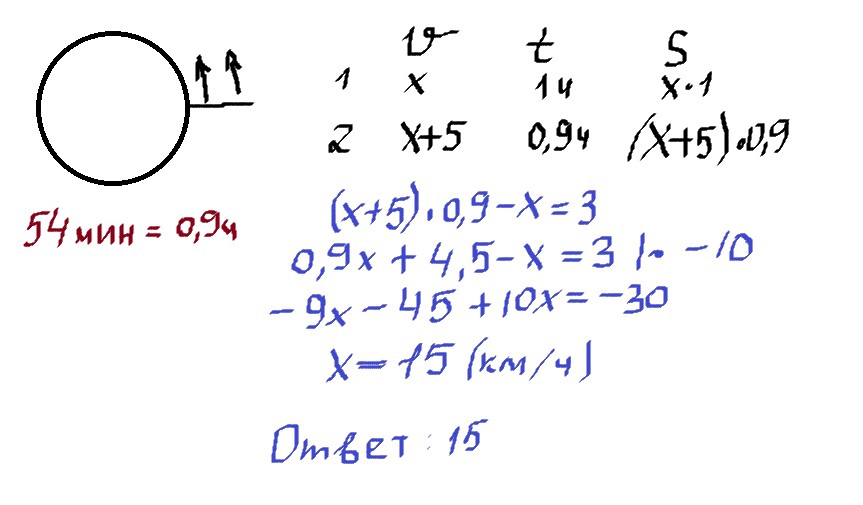 v t S
1 x 1ч x·1
2 x+5 0,9ч (x+5)·0,9
54мин = 0,9ч
(x+5)·0,9-x=3
0,9x + 4,5-x = 3 |· -10
-9x - 45 +10x = -30
x = 15 (км/ч)
Ответ: 15